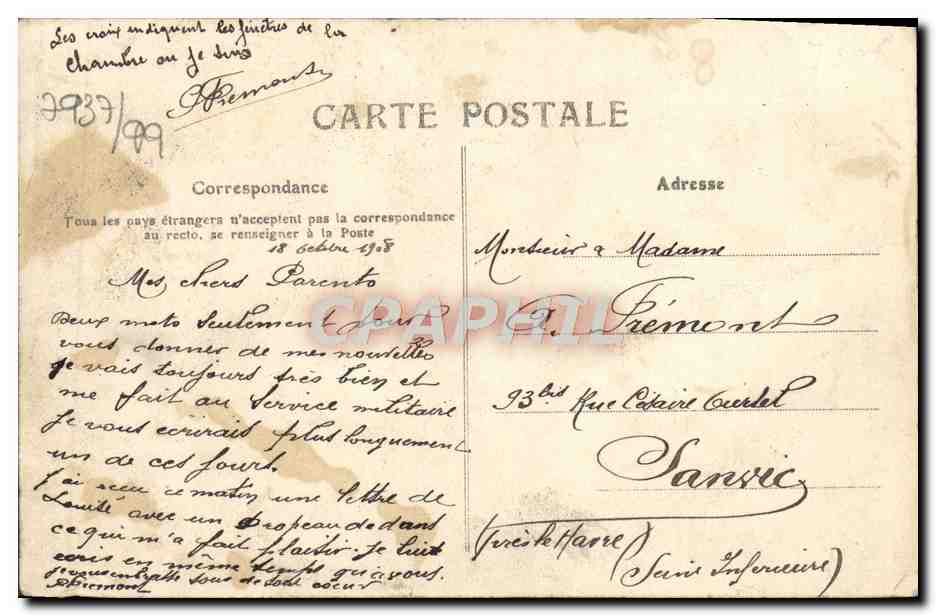 Les croix indiquent les fenêtres de la
Chambre ou je suis
Fremont
2937/99
CARTE POSTALE
Correspondance
Tous les pays étrangers n'acceptent pas la correspondance
au recto, se renseigner à la Poste
18 octobre 1908
Mes chers Parents
Deux mots seulement pour
vous donner de mes nouvelles
je vais toujours très bien et
me fait au service militaire
Je vous écrirais plus longuement
un de ces jours.
J'ai recu ce matin une lettre de
Louise avec un Dropeau de dans
ce qui m'a fait plaisir. Je lui
ecris en même temps qu'a vous.
Je vous embrasse tous de tout coeur
Fremont
CRAPHIL
Adresse
Monsieur & Madame
Frémont
93bis Rue Césaire
Sanvic
(près le Havre)
(Seine Inferieure)